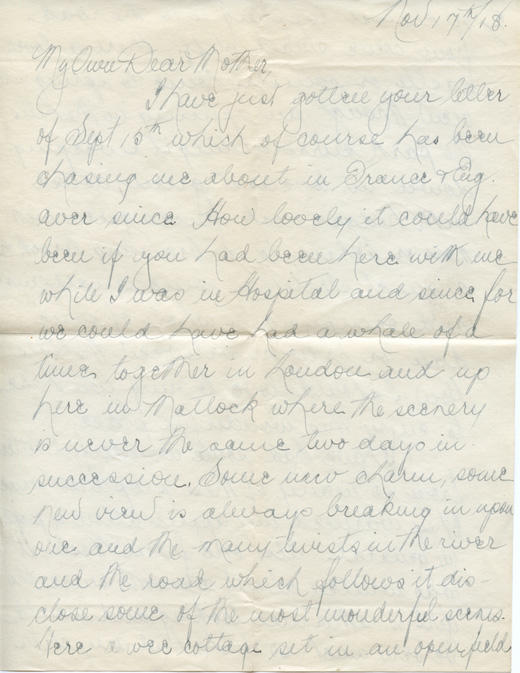 Nov 17th/18.
My Own Dear Mother,
I have just gotten your letter
of Sept 15th which of course has been
chasing me about in France & Eng.
aver since. How lovely it could have
been if you had been here with me
while I was in Hospital and since for
we could have had a whale of a
time together in London and up
here in Matlock where the scenery
is never the same two days in
succession. Some new charm, some
new view is always breaking in upon
one and the many twists in the river
and the road which follows it dis-
close some of the most wonderful scenes.
Here a wee cottage set in an open field